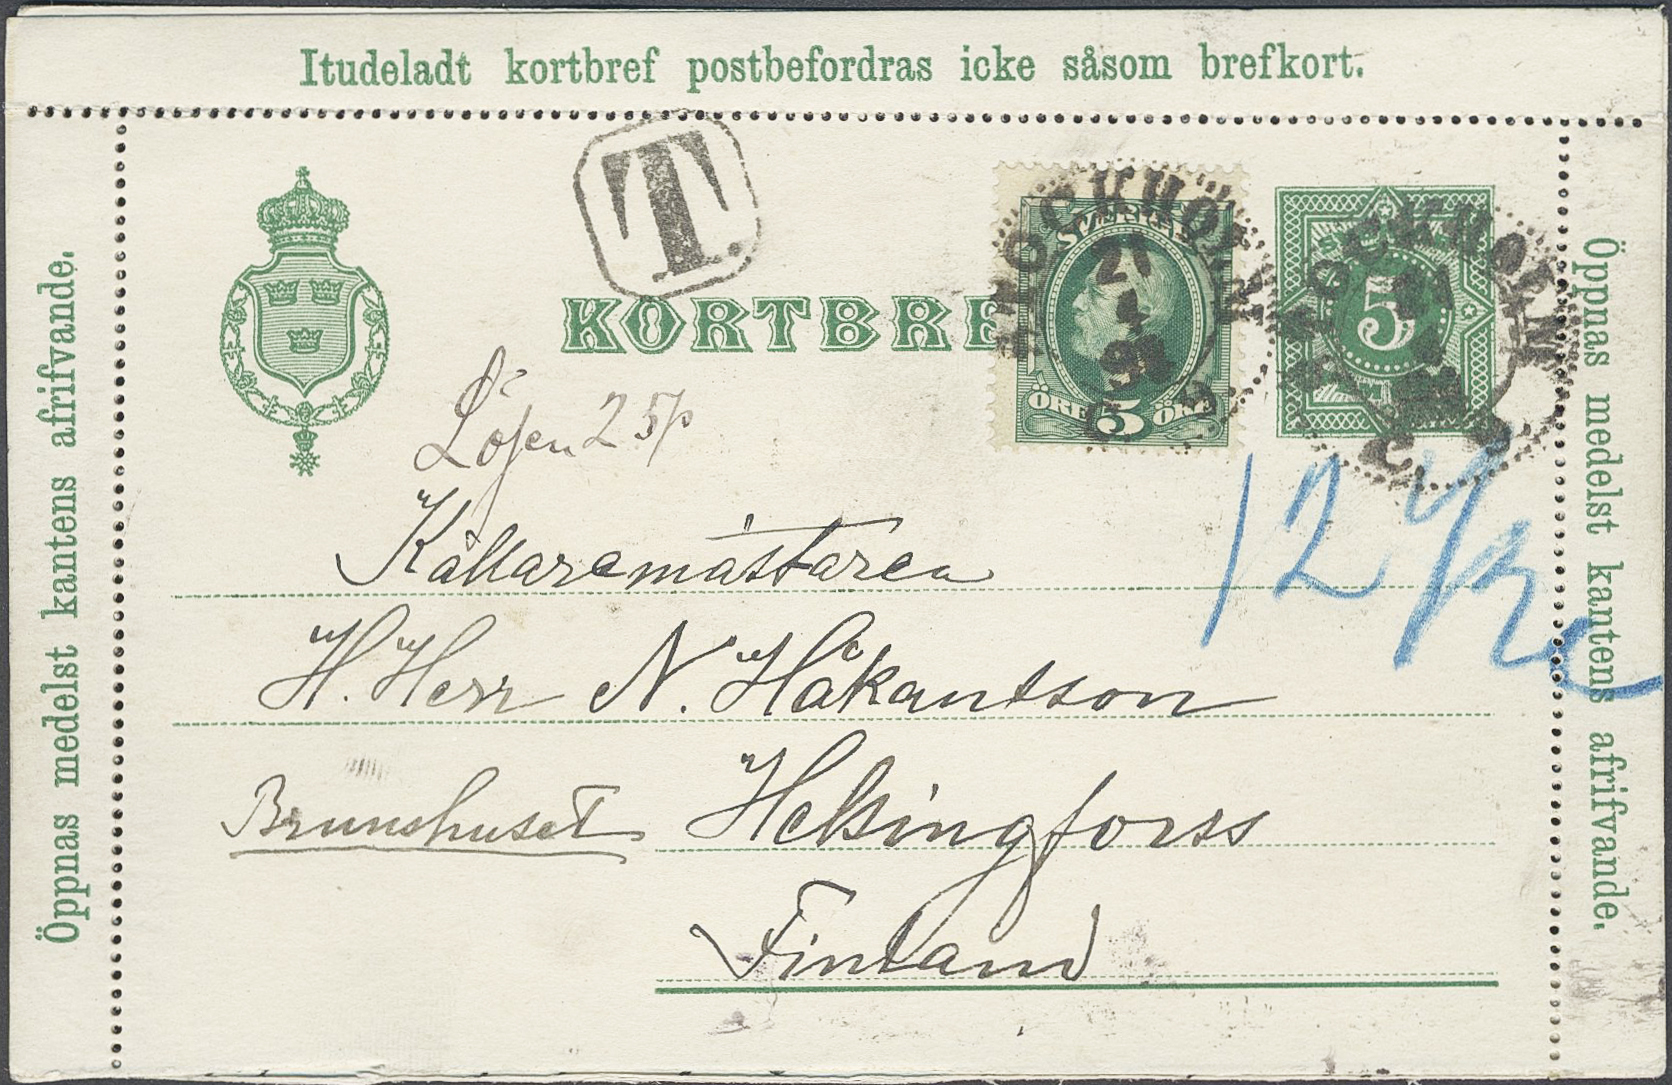 Itudeladt kortbref postbefordras icke såsom brefkort.
Öppnas medelst kantens afrifvande.
T.
KORTBRE
STOCKHOLM
21
SVERIGE
ÖRE 5 ÖRE
STOCKHOLM
5
Lösen 25 p
12 1/2 c
Källaremästaren
H. Herr N. Håkantson
Brunshuset Helsingforss
Finland
Öppnas medelst kantens afrifvande.